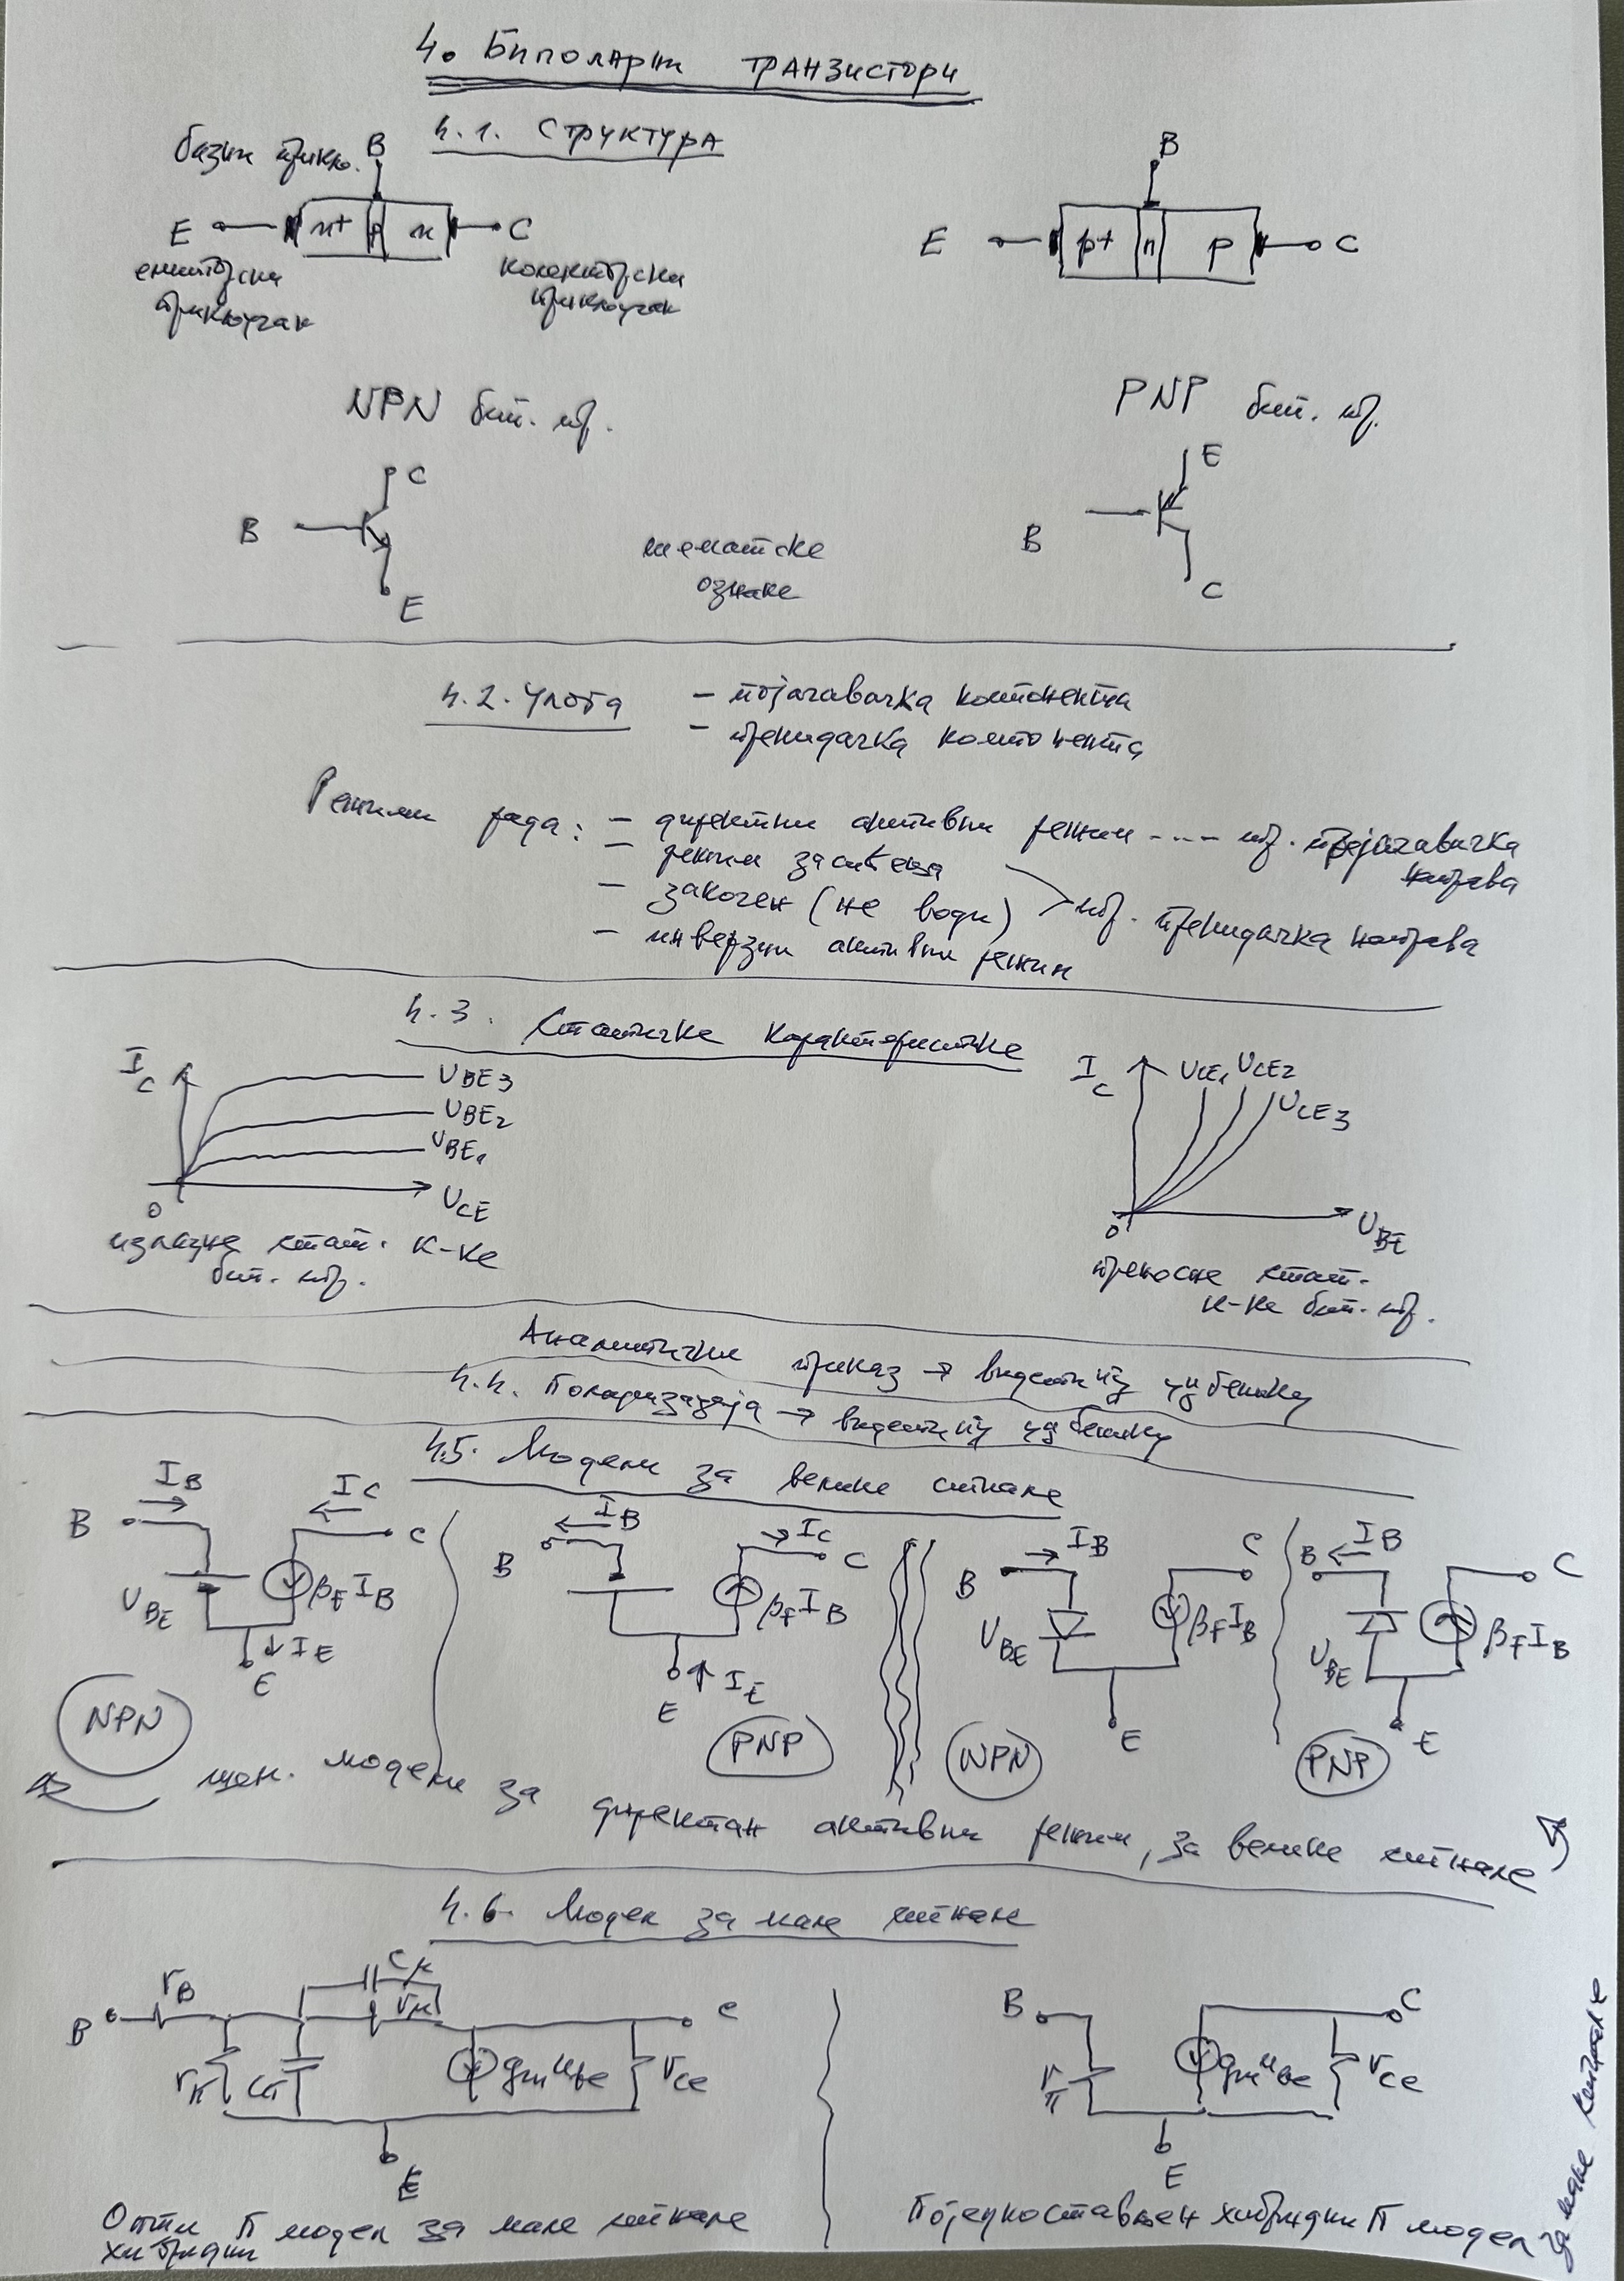 4. Биполарни транзистори
4.1. Структура
базни прикљ. B
E n+ p n C
емиторски прикључак
колекторски прикључак
B
E p+ n p C
NPN бип. тр.
PNP бип. тр.
C
B
E
шематске
ознаке
E
B
C
4.2. Улога - појачавачка компонента
- прекидачка компонента
Режими рада: - директни активни режим ---- тр. појачавачка
направа
- режим засићења
- закочен (не води) тр. прекидачка направа
- инверзни активни режим
4.3. Статичке карактеристике
IC UBE3
UBE2
UBE1
0 UCE
излазне стат. к-ке
бип. тр.
IC UCE1 UCE2
UCE3
0 UBE
преносне стат.
к-ке бип. тр.
Аналитички приказ → видети уџбенику
4.4. Поларизација → видети уџбенику
4.5. Модели за велике сигнале
IB IC
B C
UBE βF IB
IE
E
NPN
IB IC
B C
βF IB
IE
E
PNP
IB C
B
UBE βF IB
E
NPN
B IB C
UBE βF IB
E
PNP
модели за директан активни режим, за велике сигнале
4.6. Модел за мале сигнале
rB Cμ
B rμ c
rπ Cπ gm ube rce
E
Општи π модел за мале сигнале
хибридни
B C
rπ gm ube rce
E
Поједностављен хибридни π модел
за мале сигнале